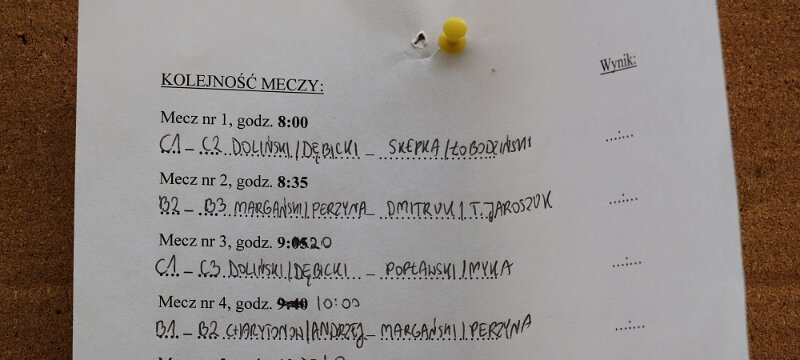 Wynik:
KOLEJNOŚĆ MECZY:
Mecz nr 1, godz. 8:00
C1 – C2 DOLIŃSKI/DĘBICKI – SKEPKA/ŁOBODZIŃSKI ...:...
Mecz nr 2, godz. 8:35
B2 – B3 MARGAŃSKI/PERZYNA – DMITRUK/T.JAROSZUK ...:...
Mecz nr 3, godz. 9:20
C1 – C3 DOLIŃSKI/DĘBICKI – POPŁAWSKI/MYKA ...:...
Mecz nr 4, godz. 9:40 10:00
B1 – B2 CHARYTONOW/ANDRZEJ – MARGAŃSKI/PERZYNA ...:...